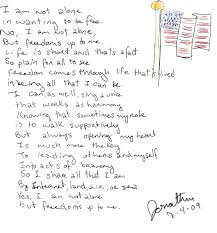 I am not alone
in wanting to be free.
No, I am not alone,
But freedom's up to me.
Life is short and that's a fact
So plain for all to see
Freedom comes through life that's lived
in being all that I can be
I can, as well, sing a voice
that works as harmony
Knowing that sometimes my note
is to walk supportively
But always opening my heart
Is much more the key
To leading others and myself
Into acts of bravery
So I share all that I am
By internet, land, air, or sea
Yes, I am not alone
but freedom's up to me.
Jonathan
4-09